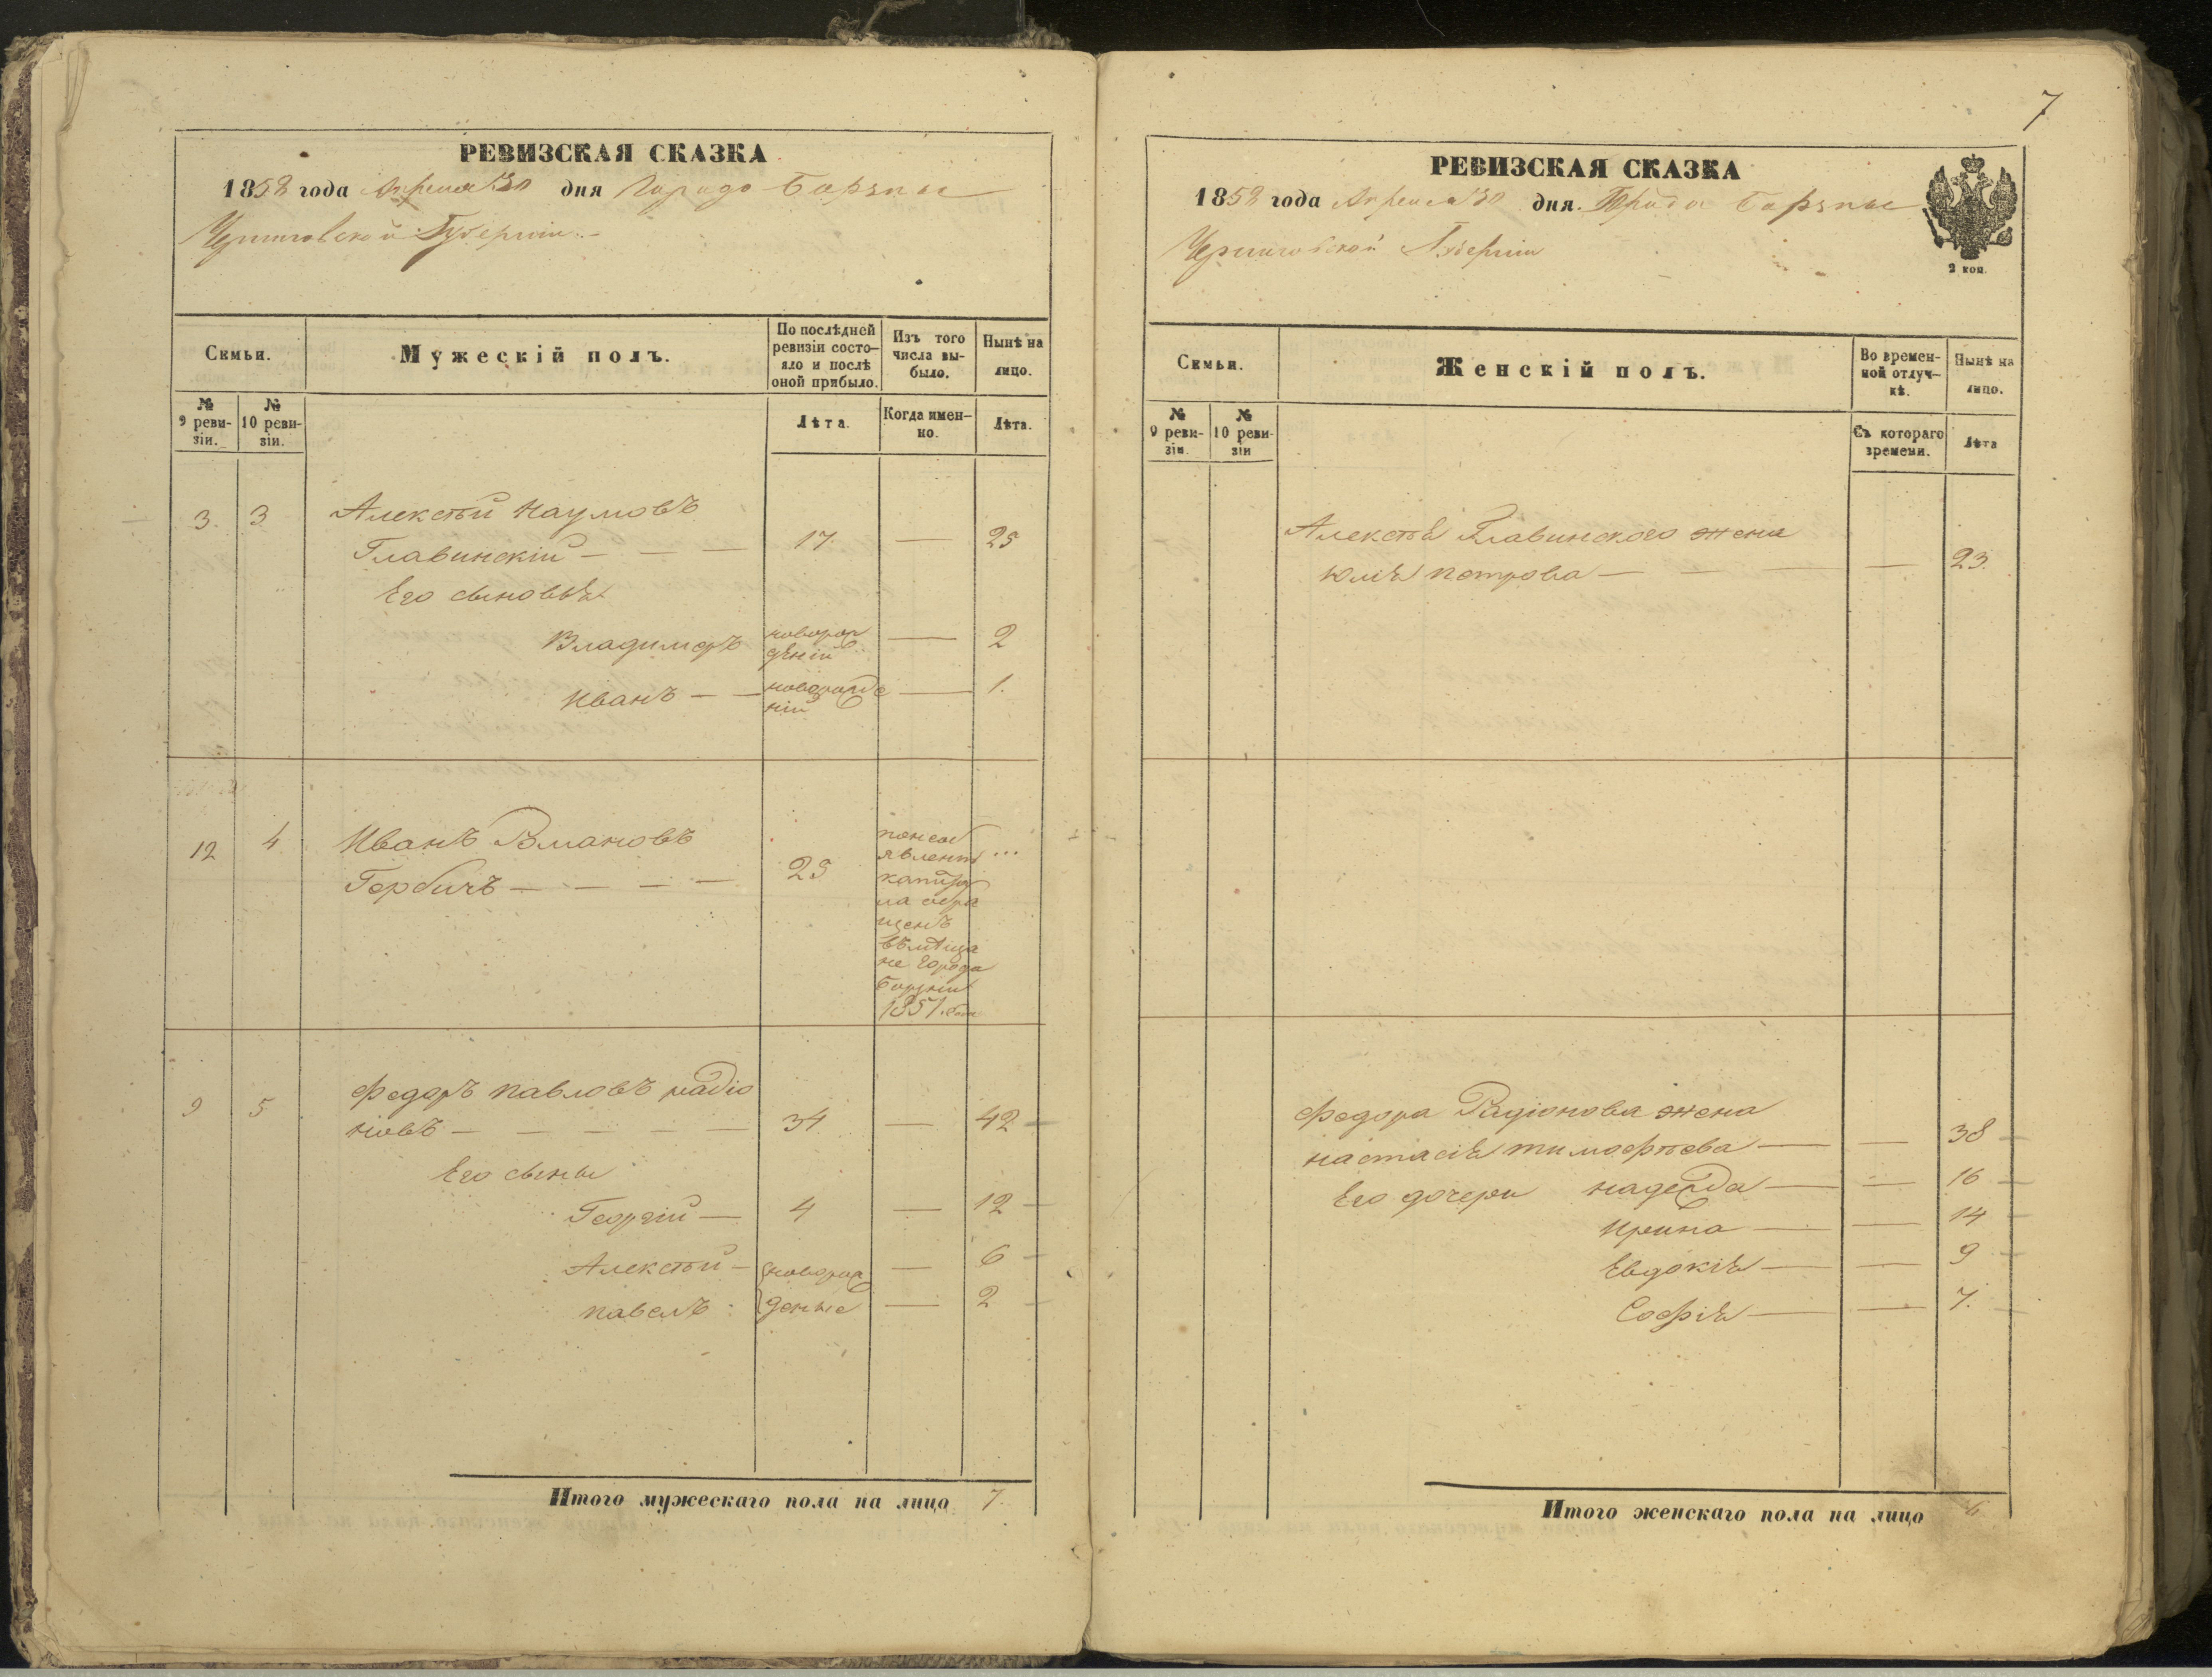 РЕВИЗСКАЯ СКАЗКА
1858 года Апреля 30 дня Города Борзны
Черниговской Губерніи
Семьи.
Мужескій полъ.
По послѣдней ревизіи состояло и послѣ оной прибыло.
Изъ того числа выбыло.
Нынѣ на лицо.
№ 9 ревизіи.
№ 10 ревизіи.
Лѣта.
Когда именно.
Лѣта.
3. 3 Алексѣй Наумовъ
Главинскій — — — 17 — 25
Его сыновья
Владимеръ новорож
деній — 2
Иванъ — — новорожде
ній — 1.
12 4 Иванъ
Гербичъ — — — — 25
явленію ...
щенъ
въмѣща
не города
Борзни
1851. года
9 5 Федоръ Павловъ радіо
новъ — — — — — 34 — 42
Его сыны
Георгій — 4 — 12
Алексѣй — новорож — 6
Павелъ : деные — 2
Итого мужескаго пола на лицо 7.
7
РЕВИЗСКАЯ СКАЗКА
1858 года Апреля 30 дня. Города Борзны
Черниговской Губерніи
2 коп.
Семьи.
Женскій полъ.
Во временной отлучкѣ.
Нынѣ на лицо.
№ 9 ревизіи.
№ 10 ревизіи
Съ котораго времени.
Лѣта
Алексѣя Главинскаго жена
Юлія Петрова — — — — 23.
Федора Радіонова жена
Настасія Тимофѣева — — 38
Его дочери Надежда — — 16
Ирина — — 14
Евдокія — — 9
Софія — — 7.
Итого женскаго пола на лицо 6